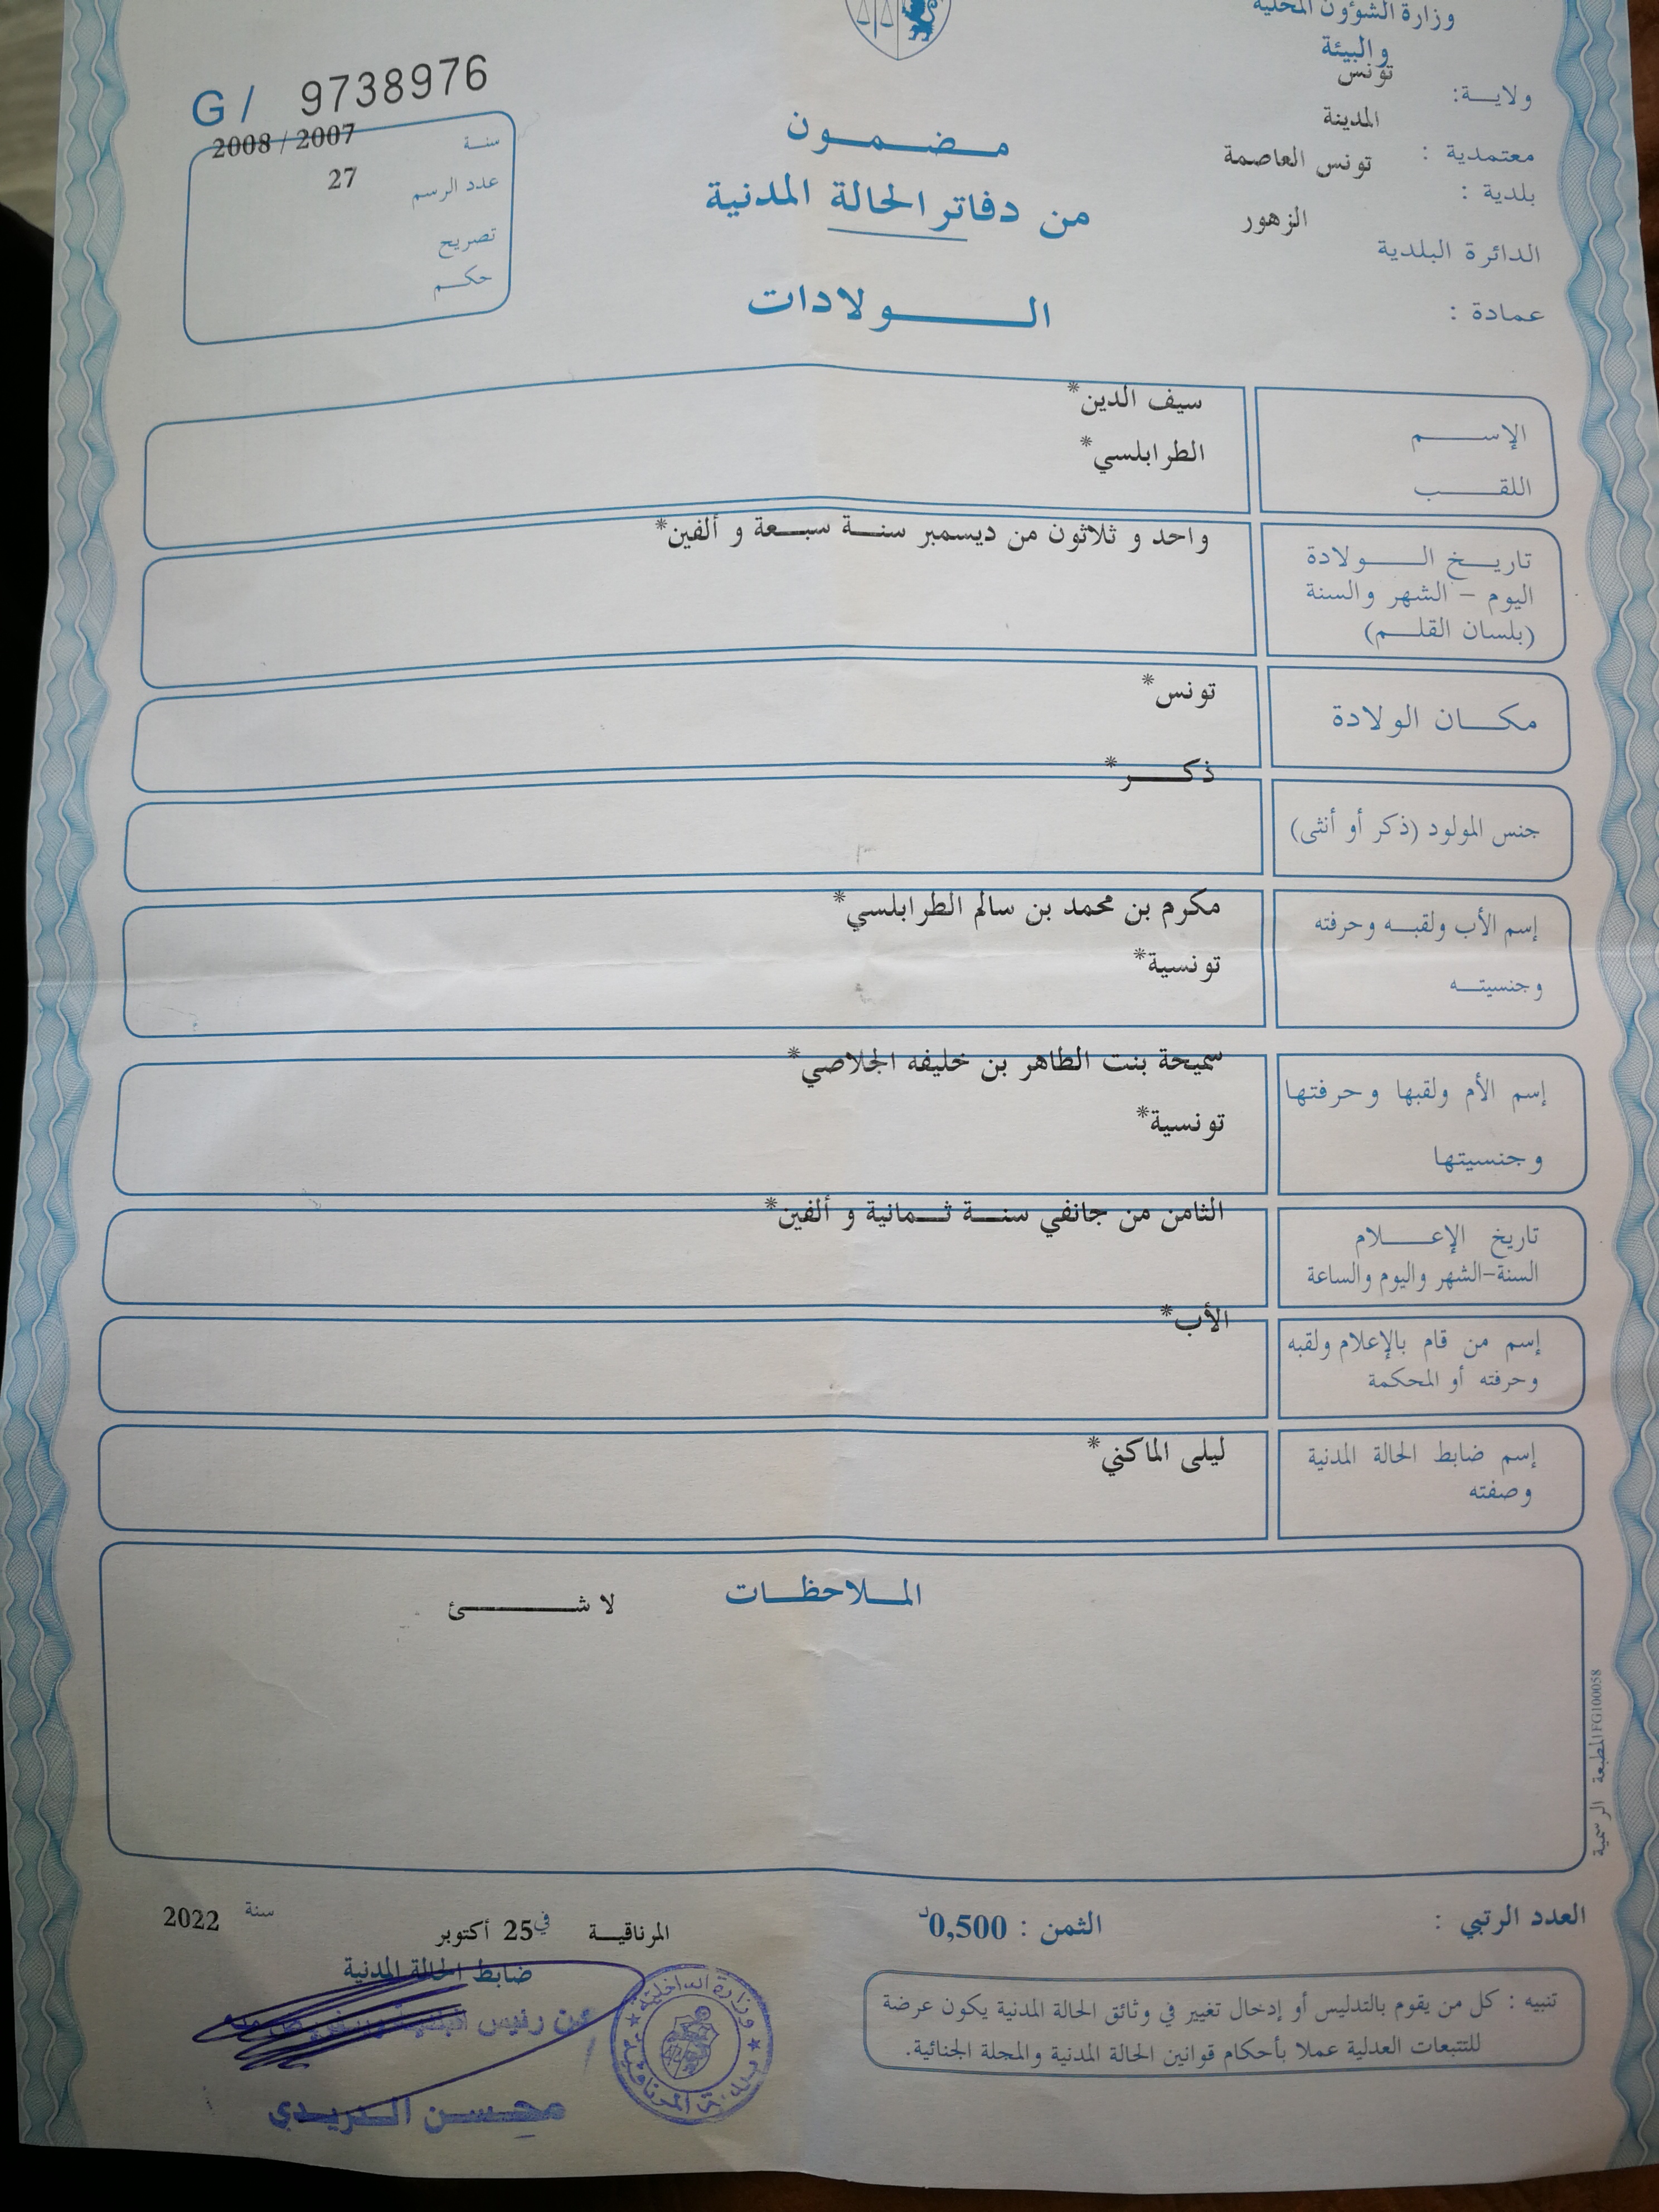 وزارة الشؤون المحلية
والبيئة
ولاية: تونس
المدينة
معتمدية : تونس العاصمة
بلدية :
الزهور
الدائرة البلدية
عمادة :
مضمون
من دفاتر الحالة المدنية
الولادات
G/ 9738976
سنة 2008 / 2007
عدد الرسم 27
تصريح
حكم
الإسم سيف الدين*
اللقب الطرابلسي*
تاريخ الولادة واحد و ثلاثون من ديسمبر سنة سبعة و ألفين*
اليوم - الشهر والسنة
(بلسان القلم)
مكان الولادة تونس*
جنس المولود (ذكر أو أنثى) ذكر*
إسم الأب ولقبه وحرفته مكرم بن محمد بن سالم الطرابلسي*
وجنسيته تونسية*
إسم الأم ولقبها وحرفتها سميحة بنت الطاهر بن خليفه الجلاصي*
وجنسيتها تونسية*
تاريخ الإعلام الثامن من جانفي سنة ثمانية و ألفين*
السنة-الشهر واليوم والساعة
إسم من قام بالإعلام ولقبه الأب*
وحرفته أو المحكمة
إسم ضابط الحالة المدنية ليلى الماكني*
وصفته
الملاحظات
لا شئ
المطبعة الرسمية FG100058
العدد الرتبي :
الثمن : 0,500د
المرناقية في 25 أكتوبر سنة 2022
ضابط الحالة المدنية
عن رئيس
محسن الدريدي
وزارة الداخلية
بلدية المرناقية
تنبيه : كل من يقوم بالتدليس أو إدخال تغيير في وثائق الحالة المدنية يكون عرضة
للتتبعات العدلية عملا بأحكام قوانين الحالة المدنية والمجلة الجنائية.